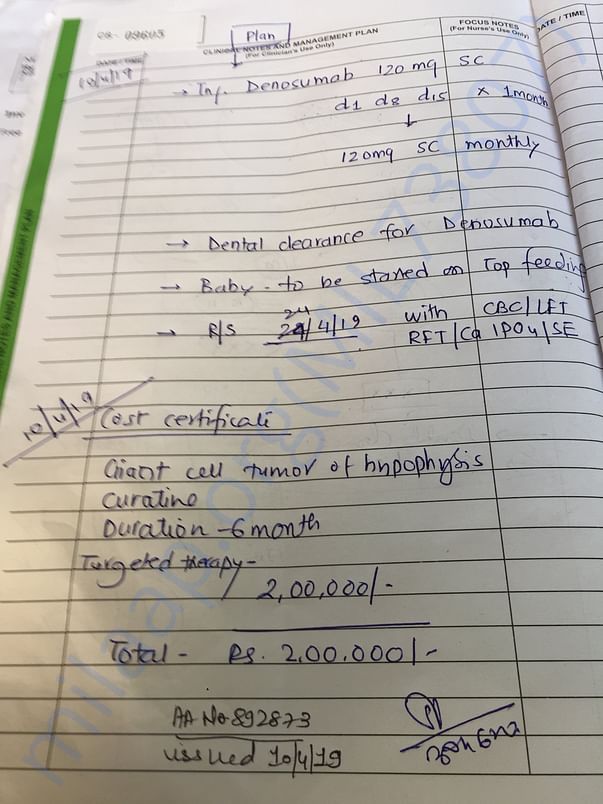 Plan
CLINICAL NOTES AND MANAGEMENT PLAN
(For Clinician's Use Only)
FOCUS NOTES
(For Nurse's Use Only)
DATE / TIME
DATE / TIME
10/4/19
→ Inj. Denosumab 120 mg SC
d1 d8 d15 x 1month
↓
120mg SC monthly
→ Dental clearance for Denosumab
→ Baby - to be started on Top feeding
→ R/S 24/4/19 with CBC/LFT
RFT/Ca/PO4/SE
10/4/19
Cost certificate
Giant cell tumor of hypophysis
Curative
Duration - 6 month
Targeted therapy -
2,00,000/-
Total - Rs. 2,00,000/-
AA No 892873
issued 10/4/19
NOTES AND MANAGEMENT PLAN